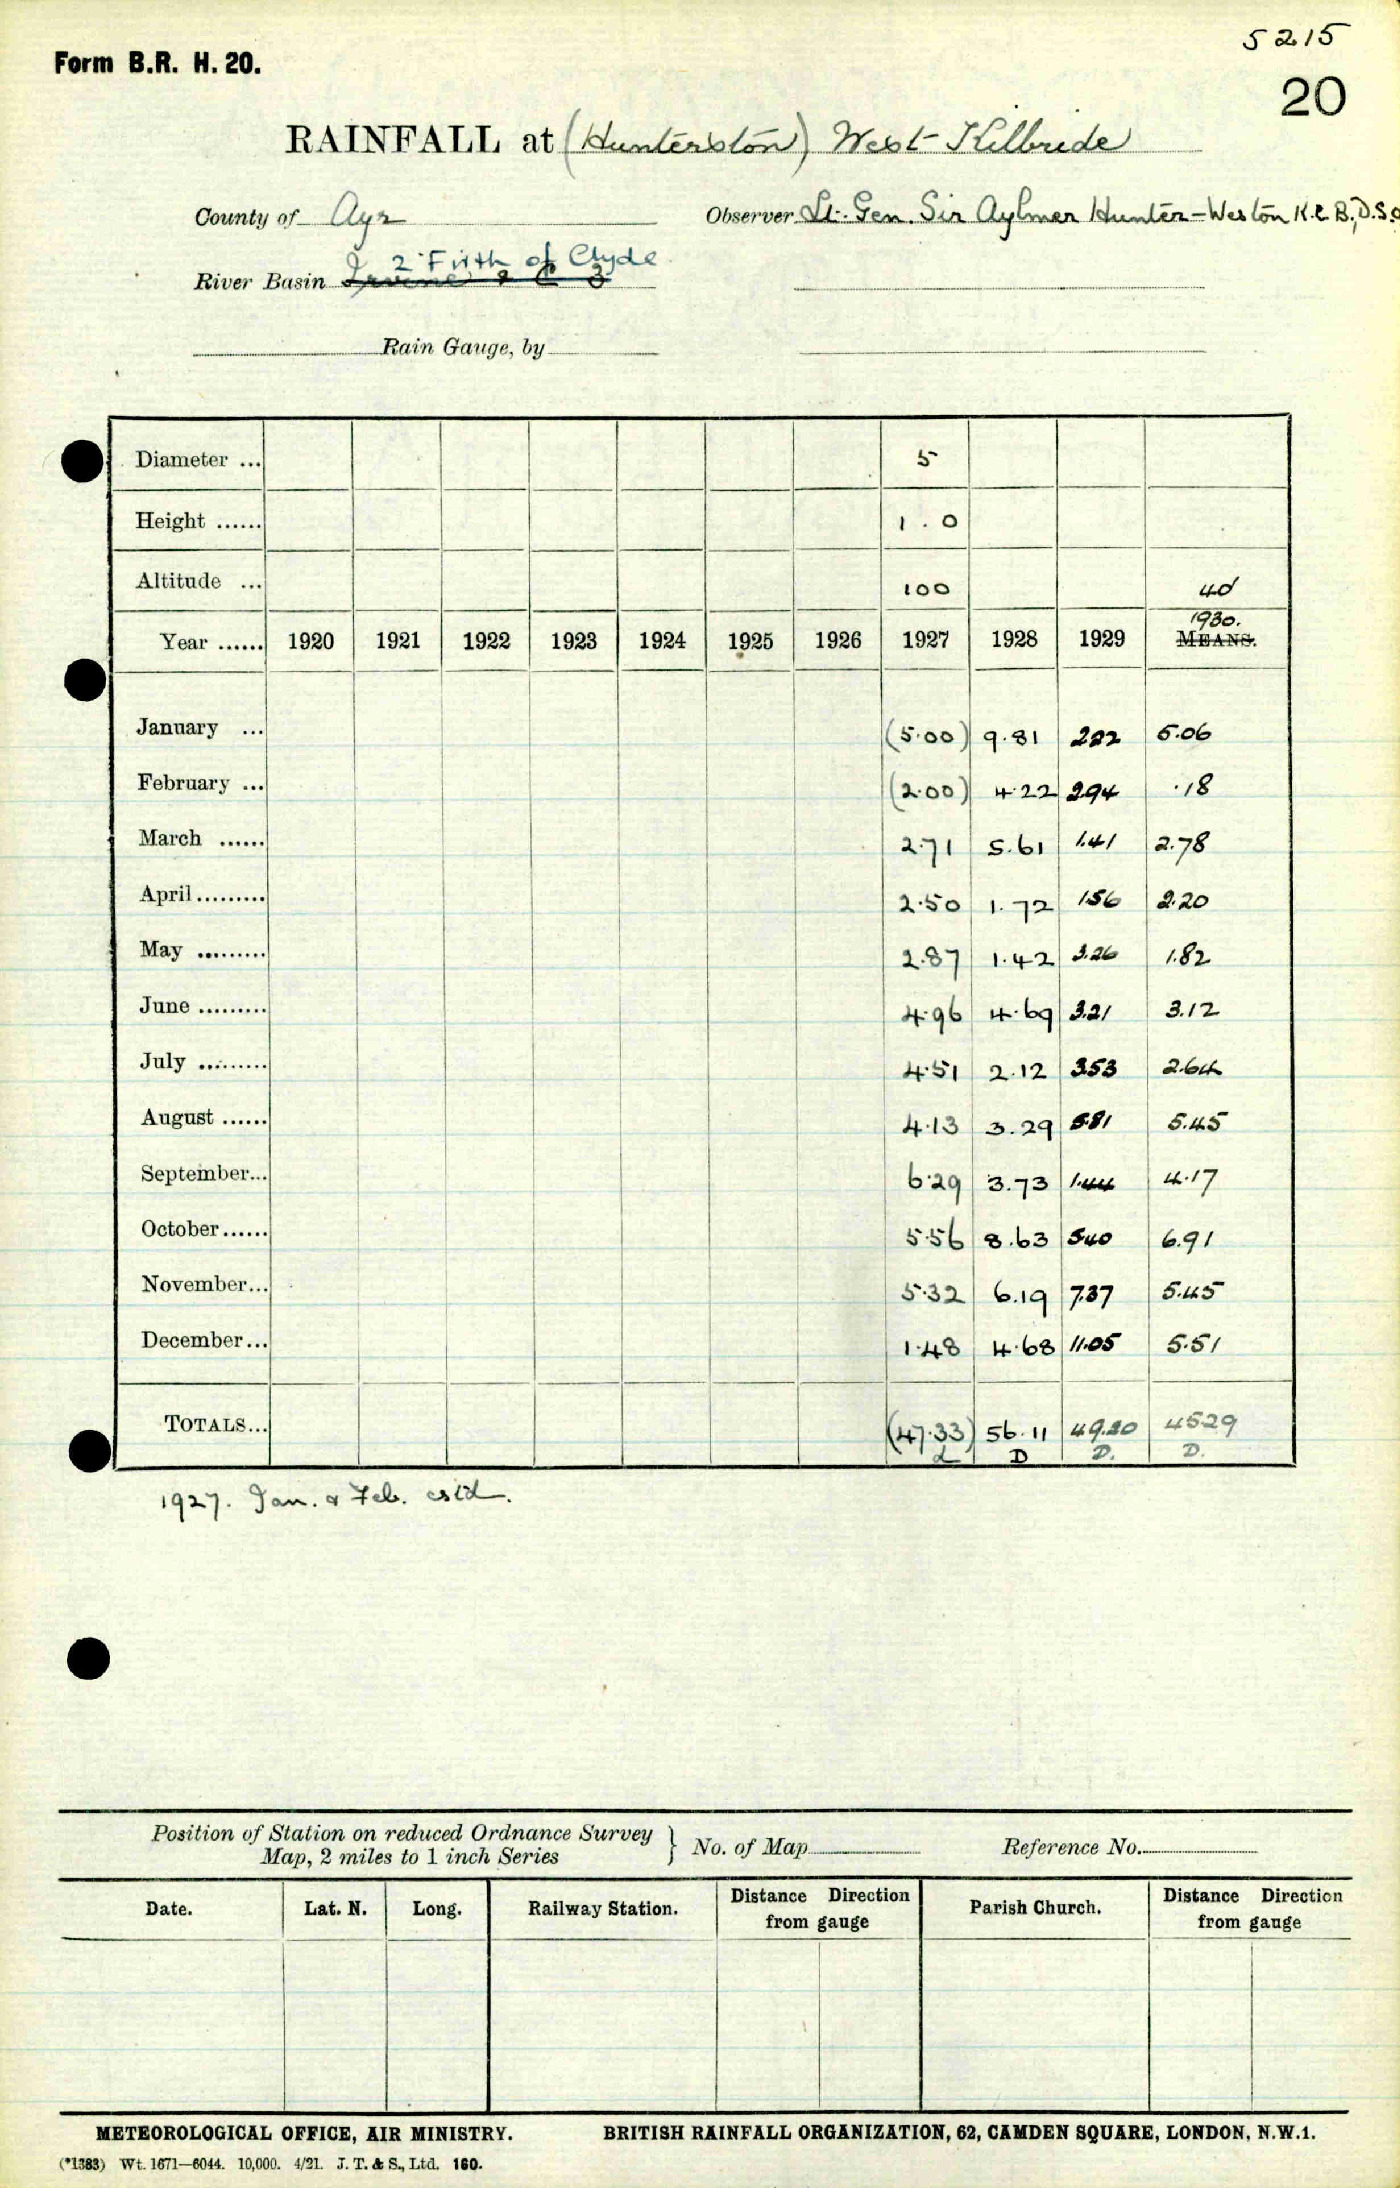 5215
Form B.R. H. 20.
20
RAINFALL at (Hunterston) West Kilbride
County of Ayr
Observer Lt. Gen. Sir Aylmer Hunter-Weston K.C.B., D.S.O
2 Firth of Clyde
River Basin Irvine & C 3
Rain Gauge, by
Diameter ... 5
Height ...... 1.0
Altitude ... 100 40
1930.
Year ...... 1920 1921 1922 1923 1924 1925 1926 1927 1928 1929 MEANS.
January ... (5.00) 9.81 2.22 5.06
February ... (2.00) 4.22 2.94 .18
March ...... 2.71 5.61 1.41 2.78
April......... 2.50 1.72 1.56 2.20
May ......... 2.87 1.42 3.26 1.82
June ......... 4.96 4.69 3.21 3.12
July ......... 4.51 2.12 3.53 2.64
August ...... 4.13 3.29 5.81 5.45
September... 6.29 3.73 1.44 4.17
October...... 5.56 8.63 5.40 6.91
November... 5.32 6.19 7.37 5.45
December... 1.48 4.68 11.05 5.51
TOTALS... (47.33) 56.11 49.20 45.29
L D D. D.
1927. Jan. & Feb. estd.
Position of Station on reduced Ordnance Survey
Map, 2 miles to 1 inch Series } No. of Map Reference No.
Date. Lat. N. Long. Railway Station. Distance Direction from gauge Parish Church. Distance Direction from gauge
METEOROLOGICAL OFFICE, AIR MINISTRY. BRITISH RAINFALL ORGANIZATION, 62, CAMDEN SQUARE, LONDON, N.W.1.
(*1383) Wt. 1671—6044. 10,000. 4/21. J. T. & S., Ltd. 160.